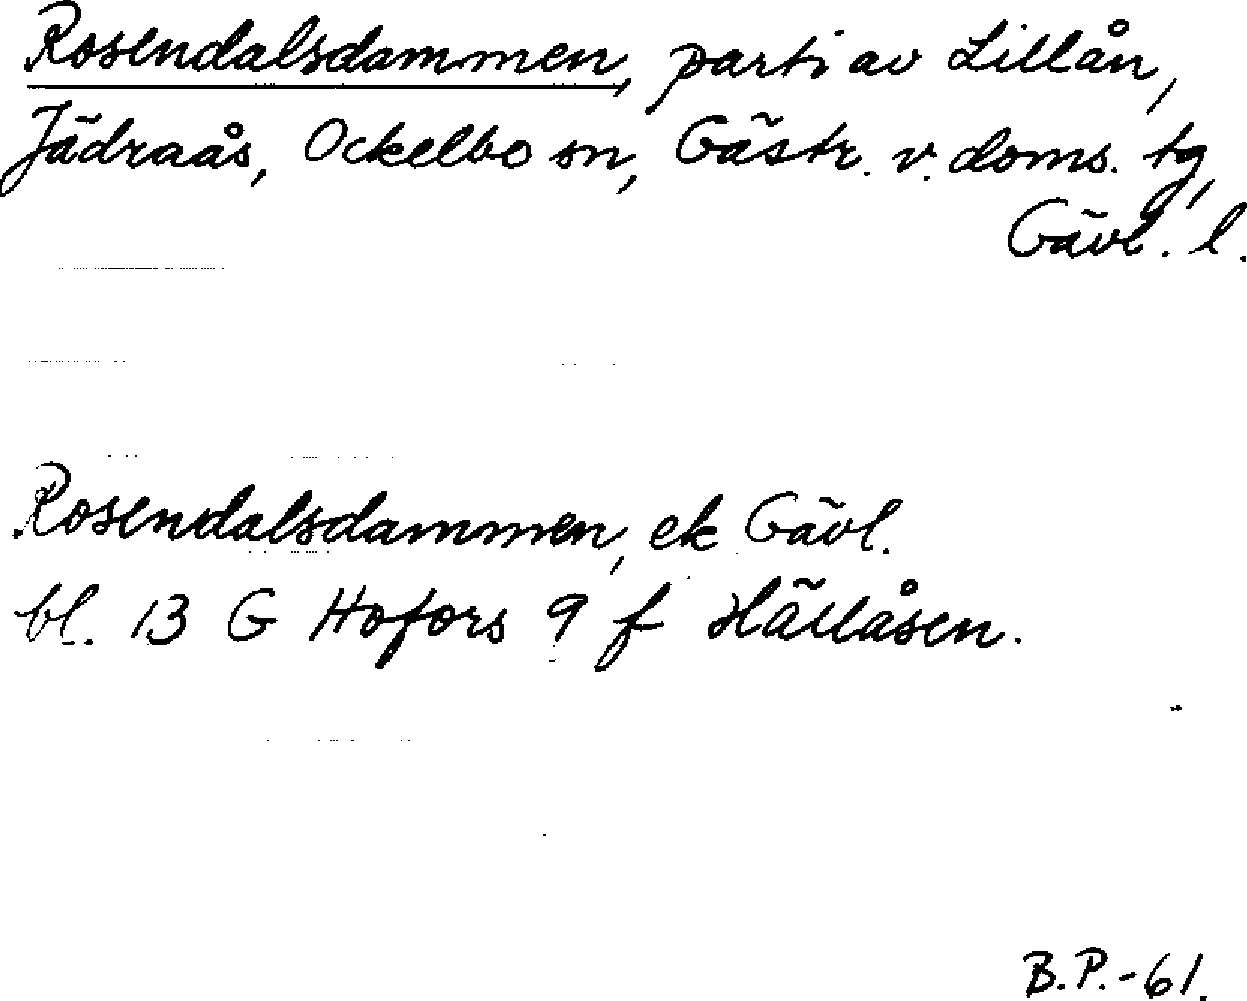 Rosendalsdammen, parti av Lillån,
Jädraås, Ockelbo sn, Gästr. v. doms. tg,
Gävl. l.
Rosendalsdammen, ek Gävl.
bl. 13 G Hofors 9 f Hällåsen.
B.P.-61.